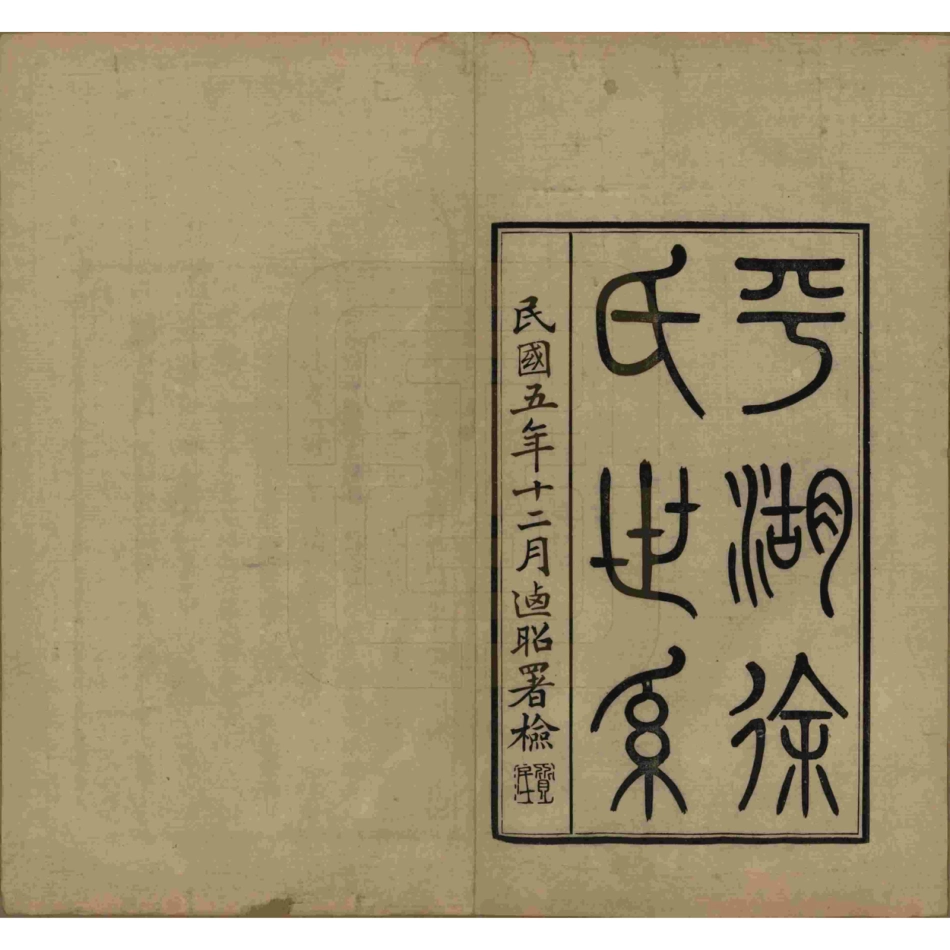 平湖徐
氏世系
民國五年十二月逌昭署檢